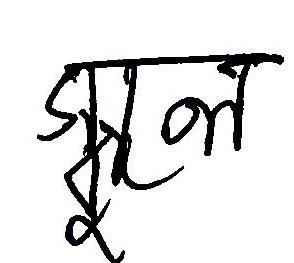 স্কুল